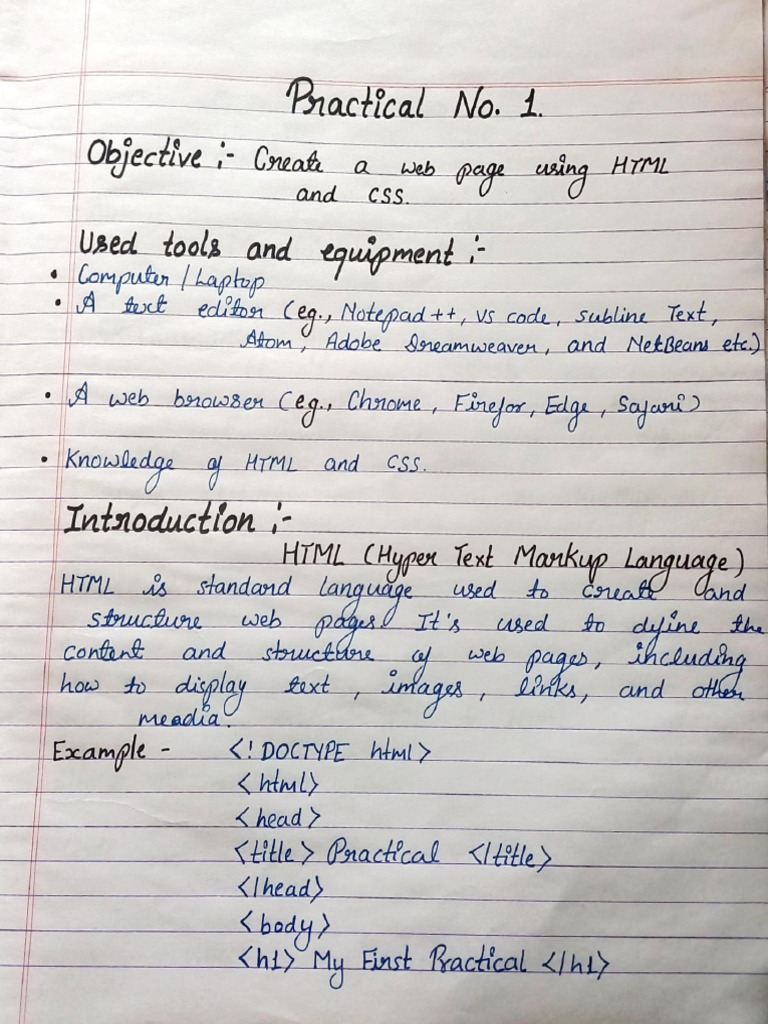 Practical No. 1.
Objective :- Create a web page using HTML
and CSS.
Used tools and equipment :-
• Computer / Laptop
• A text editor (eg., Notepad ++, VS code, subline Text,
Atom, Adobe Dreamweaver, and NetBeans etc.)
• A web browser (eg., Chrome, Firefox, Edge, Safari)
• Knowledge of HTML and CSS.
Introduction :-
HTML (Hyper Text Markup Language)
HTML is standard language used to create and
structure web pages. It's used to define the
content and structure of web pages, including
how to display text, images, links, and other
meadia.
Example - <! DOCTYPE html>
<html>
<head>
<title> Practical </title>
</head>
<body>
<h1> My First Practical </h1>